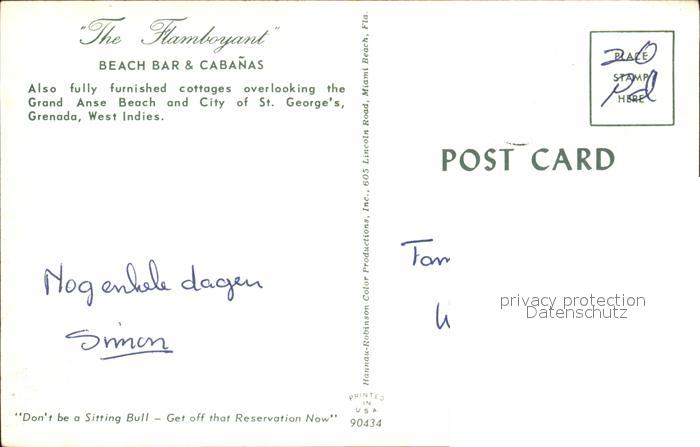 "The Flamboyant"
BEACH BAR & CABAÑAS
Also fully furnished cottages overlooking the
Grand Anse Beach and City of St. George's,
Grenada, West Indies.
Nog enkele dagen
Simon
"Don't be a Sitting Bull — Get off that Reservation Now"
Hannau-Robinson Color Productions, Inc., 605 Lincoln Road, Miami Beach, Fla.
PRINTED
IN
USA
90434
PLACE
STAMP
HERE
POST CARD
Fam
privacy protection
Datenschutz